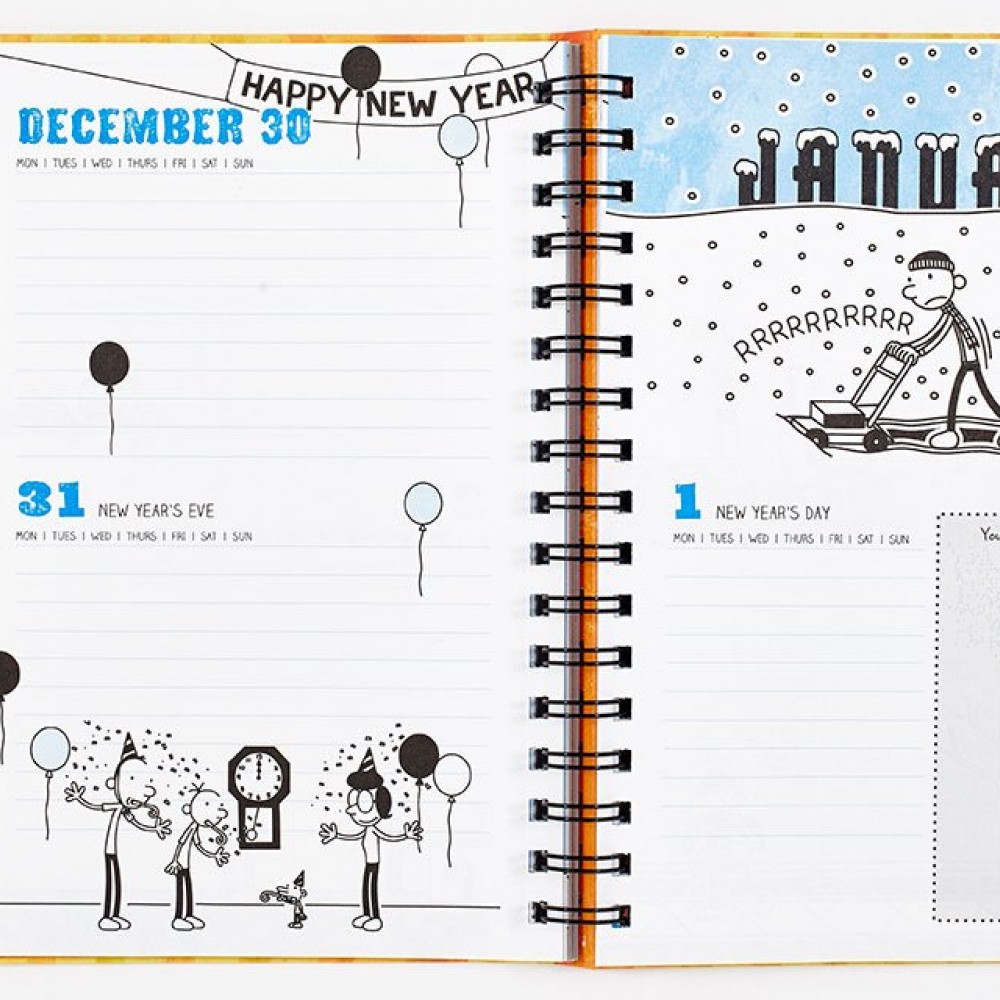 HAPPY NEW YEAR
DECEMBER 30
MON | TUES | WED | THURS | FRI | SAT | SUN
31 NEW YEAR'S EVE
MON | TUES | WED | THURS | FRI | SAT | SUN
JANUA
RRRRRRRRRR
1 NEW YEAR'S DAY
MON | TUES | WED | THURS | FRI | SAT | SUN
You